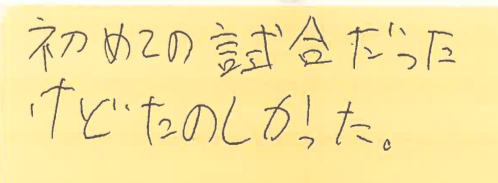 初めての試合だった
けどたのしかった。